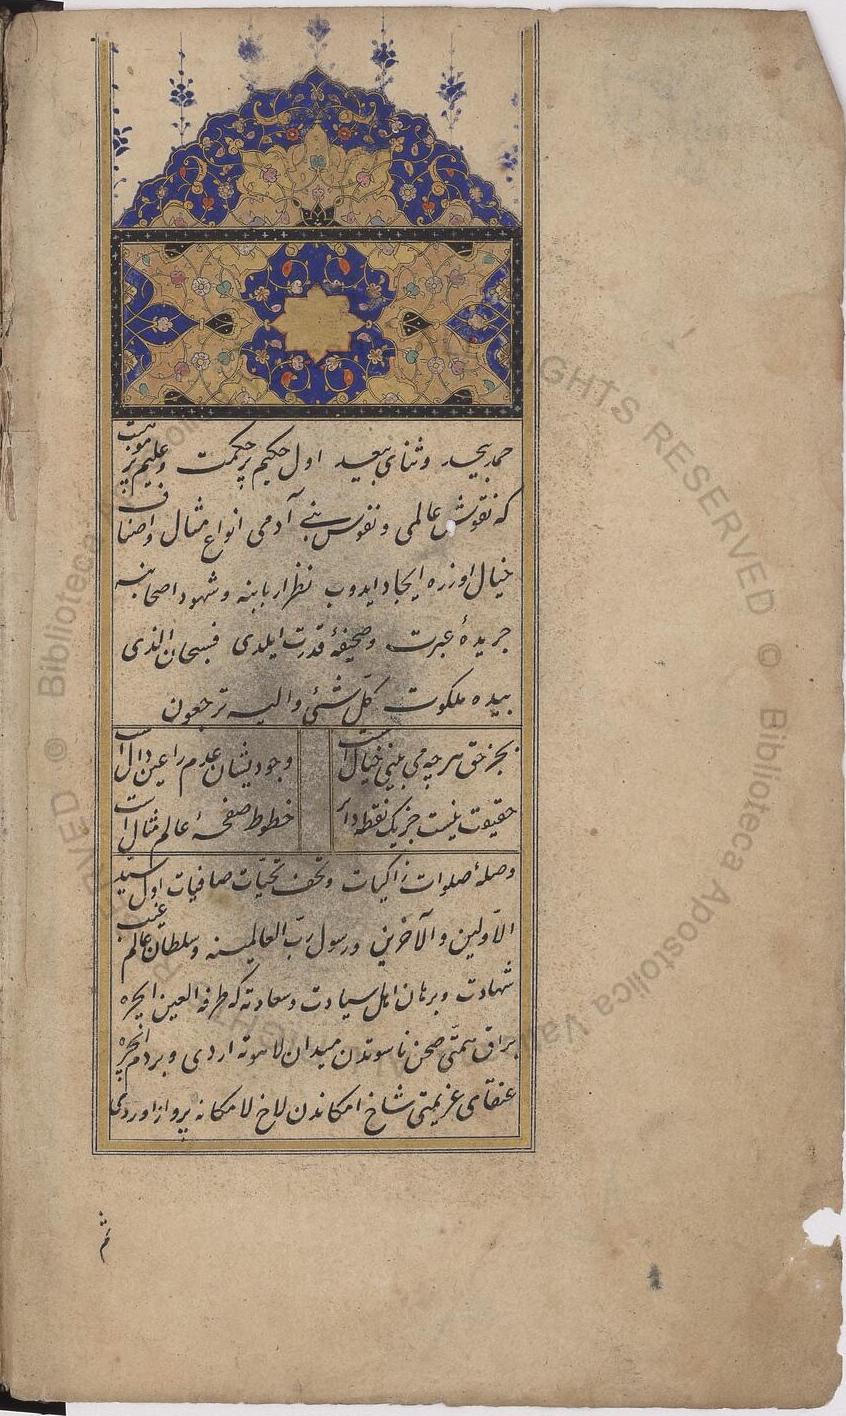 حمد بیحد وثنای بیعد اول حکیم پر حکمت وعلیم پر موهبت
که نقوش عالمی ونفوس بنی آدمی انواع مثال واصناف
خیال اوزره ایجاد ایدوب نظر اربابنه وشهود اصحابنه
جریدهٔ عبرت وصحیفهٔ قدرت ایلدی فسبحان الذی
بیده ملکوت کلّ شئی والیه ترجعون
بجز حق هر چه می بینی خیال است
وجود یشان عدم را عین دال است
حقیقت نیست جز یک نقطه دائر
خطوط صفحهٔ عالم مثال است
وصلهٔ صلوات زاکیات وتحف تحیّات صافیات اول سیّد
الاوّلین والآخرین ورسول ربّ العالمینه وسلطان عالم غیب
شهادت وبرهان اهل سیادت وسعادته که طرفة العین ایچره
براق همّتی صحن ناسوتدن میدان لاهوته اردی وبردم ایچره
عنقای عزیمتی شاخ امکاندن لاخ لامکانه پرواز اوردی
ثم
© Biblioteca Apostolica Vaticana
RIGHTS RESERVED